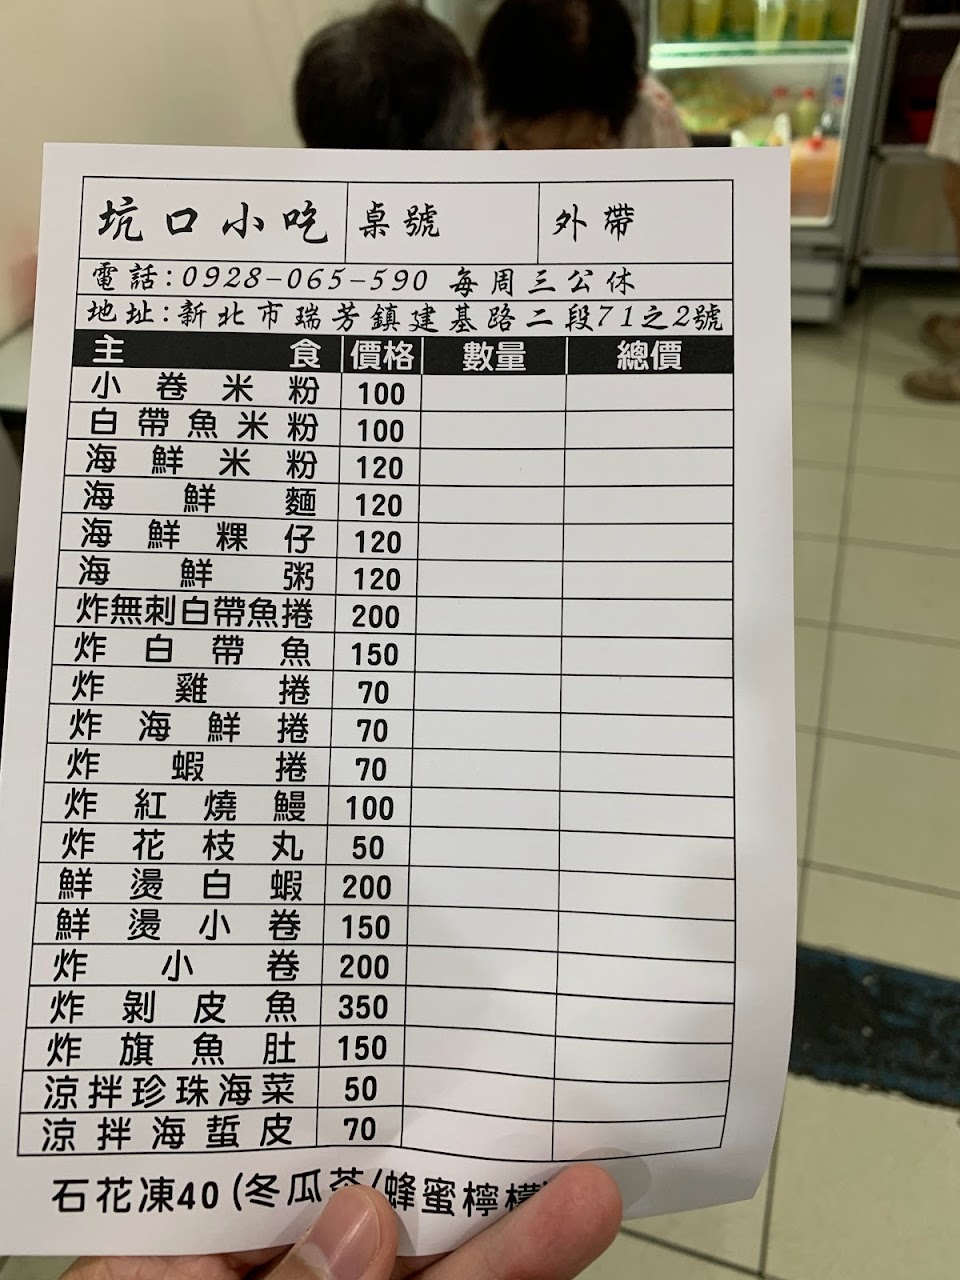 坑口小吃 桌號 外帶
電話:0928-065-590 每周三公休
地址:新北市瑞芳鎮建基路二段71之2號
主食 價格 數量 總價
小卷米粉 100
白帶魚米粉 100
海鮮米粉 120
海鮮麵 120
海鮮粿仔 120
海鮮粥 120
炸無刺白帶魚捲 200
炸白帶魚 150
炸雞捲 70
炸海鮮捲 70
炸蝦捲 70
炸紅燒鰻 100
炸花枝丸 50
鮮燙白蝦 200
鮮燙小卷 150
炸小卷 200
炸剝皮魚 350
炸旗魚肚 150
涼拌珍珠海菜 50
涼拌海蜇皮 70
石花凍40(冬瓜茶/蜂蜜檸檬